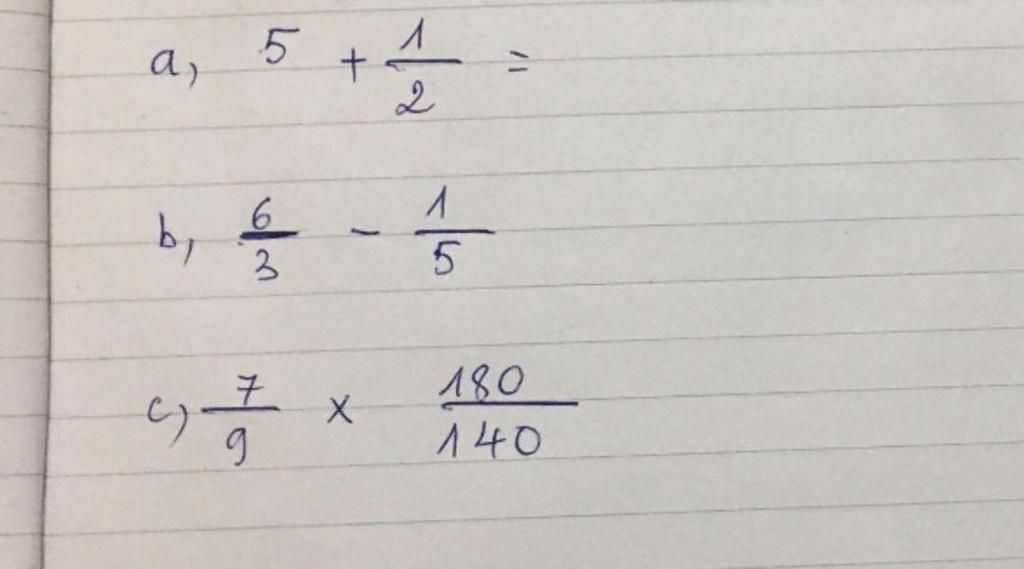 a, 5 + 1/2 =
b, 6/3 - 1/5
c) 7/9 x 180/140